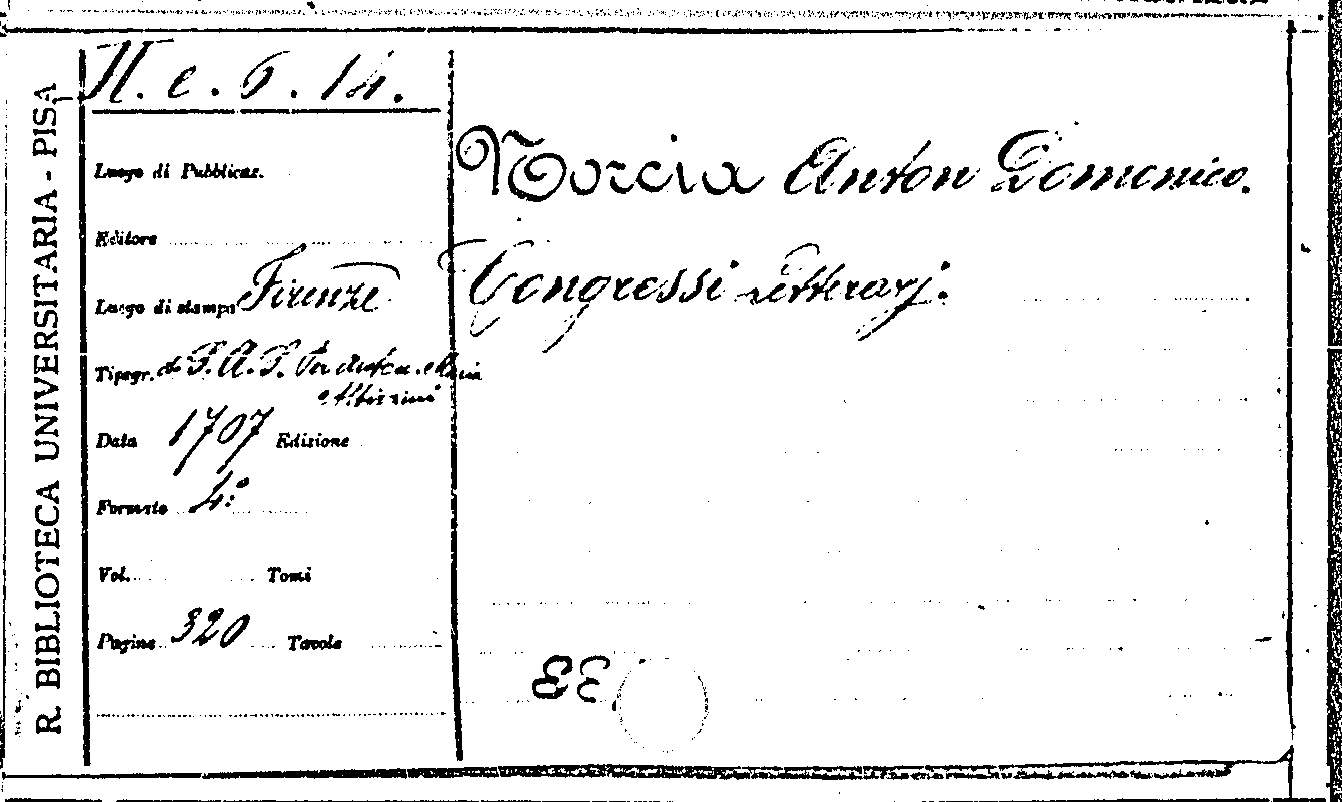 R. BIBLIOTECA UNIVERSITARIA - PISA
H. e. 6. 14.
Luogo di Pubblicaz.
Editore
Luogo di stampa Firenze
Tipogr. da S.A.S. Per Anton. Maria
Albizzini
Data 1707 Edizione
Formato 4:°
Vol. Tomi
Pagine 320 Tavole
Norcia Anton Domenico.
Congressi Letterarj.
EE.